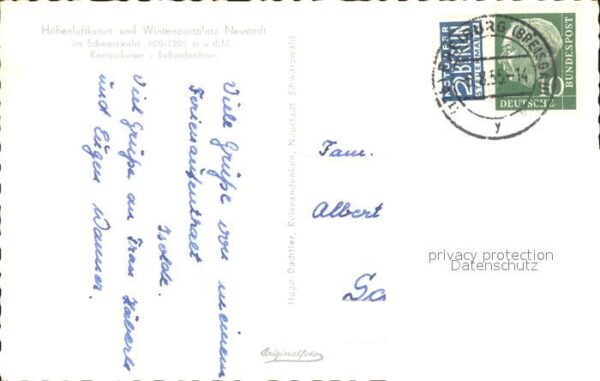 Höhenluftkurort und Wintersportplatz Neustadt
im Schwarzwald 800-1200 m ü.d.M.
Kneippkuren - Luftaufnahme
Viele Grüße von meinem
Ferienaufenthalt
Isolde.
Viel Grüße an Frau Häberle
und Eugen Wanner.
Hugo Dachtler, Reiseandenken, Neustadt, Schwarzwald
Originalfoto
NOTOPFER
2 BERLIN
STEUERMARKE
FREIBURG (BREISGAU)
8.55-14
y
10
DEUTSCHE
BUNDESPOST
Fam.
Albert
privacy protection
Datenschutz